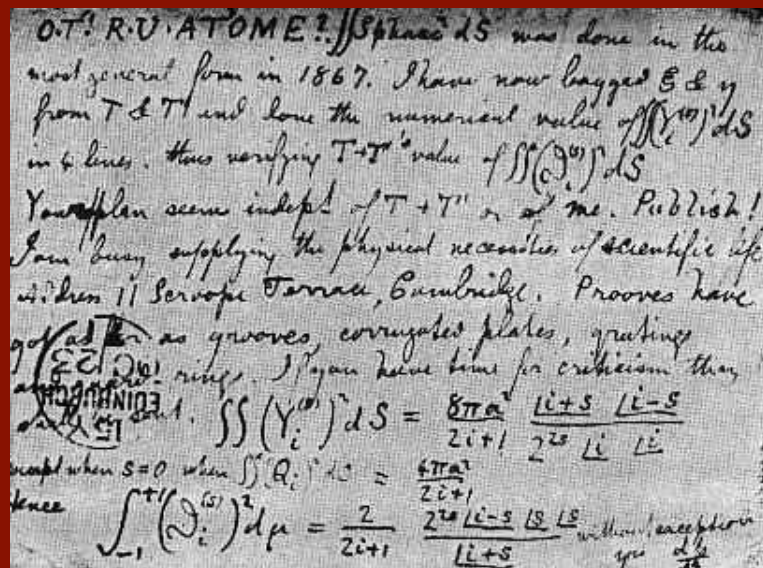 O.T! R.U. AT'OME? ∬Spharc² dS was done in the
most general form in 1867. I have now bagged ξ & η
from T & T' and done the numerical value of ∬(Y_i^(s))² dS
in 4 lines. thus verifying T+T''s value of ∬(ϑ_i^(s))² dS
Your plan seems indept. of T + T' or of me. Publish!
I am busy supplying the physical necessities of scientific life
Address 11 Scroope Terrace, Cambridge. Prooves have
got as far as grooves, corrugated plates, gratings
rings. If you have time for criticism then
sent. ∬(Y_i^(s))² dS = 8πa²/(2i+1) · |i+s |i-s / 2^{2s} |i |i
except when s=0 when ∬(Q_i)² dS = 4πa²/(2i+1)
Hence
∫_{-1}^{+1} (ϑ_i^(s))² dμ = 2/(2i+1) · 2^{2s} |i-s |s |s / |i+s without exception
yrs dp/dt
EDINBURGH